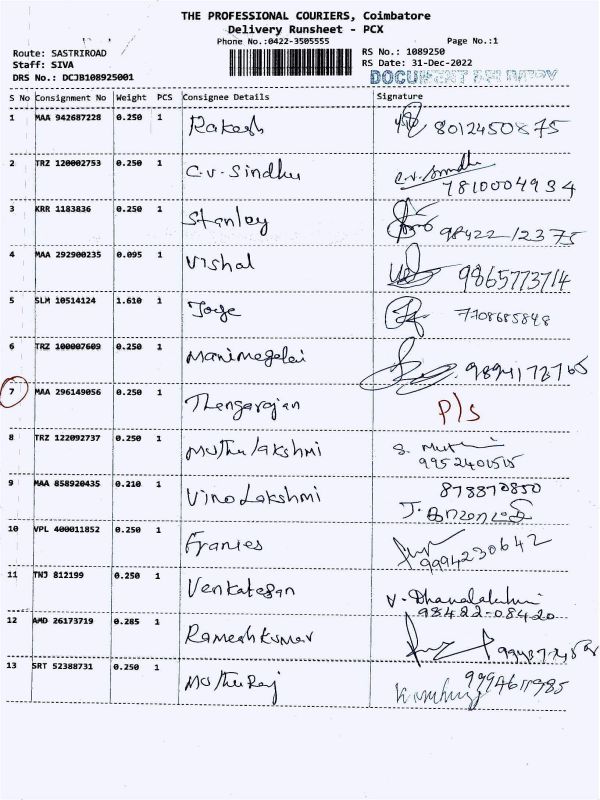 THE PROFESSIONAL COURIERS, Coimbatore
Delivery Runsheet - PCX
Phone No.:0422-3505555 Page No.:1
Route: SASTRIROAD RS No.: 1089250
Staff: SIVA RS Date: 31-Dec-2022
DRS No.: DCJB108925001 DOCUMENT DELIVERY
S No Consignment No Weight PCS Consignee Details Signature
1 MAA 942687228 0.250 1 Rakesh 8012450875
2 TRZ 120002753 0.250 1 C.V. Sindhu C.V. Sindhu
7810004934
3 KRR 1183836 0.250 1 Stanley 98422 12375
4 MAA 292900235 0.095 1 Vishal 9865773714
5 SLM 10514124 1.610 1 7708685848
6 TRZ 100007609 0.250 1 Manimegalai
7 MAA 296149056 0.250 1 Thangarajan P/S
8 TRZ 122092737 0.250 1 Muthulakshmi
9952401515
9 MAA 858920435 0.210 1 Vinolakshmi
10 VPL 400011852 0.250 1 Frances 9994230642
11 TNJ 812199 0.250 1 Venkatesan V. Dhanalakshmi
98422-08420
12 AMD 26173719 0.285 1 Ramesh Kumar
13 SRT 52388731 0.250 1 Muthuraj